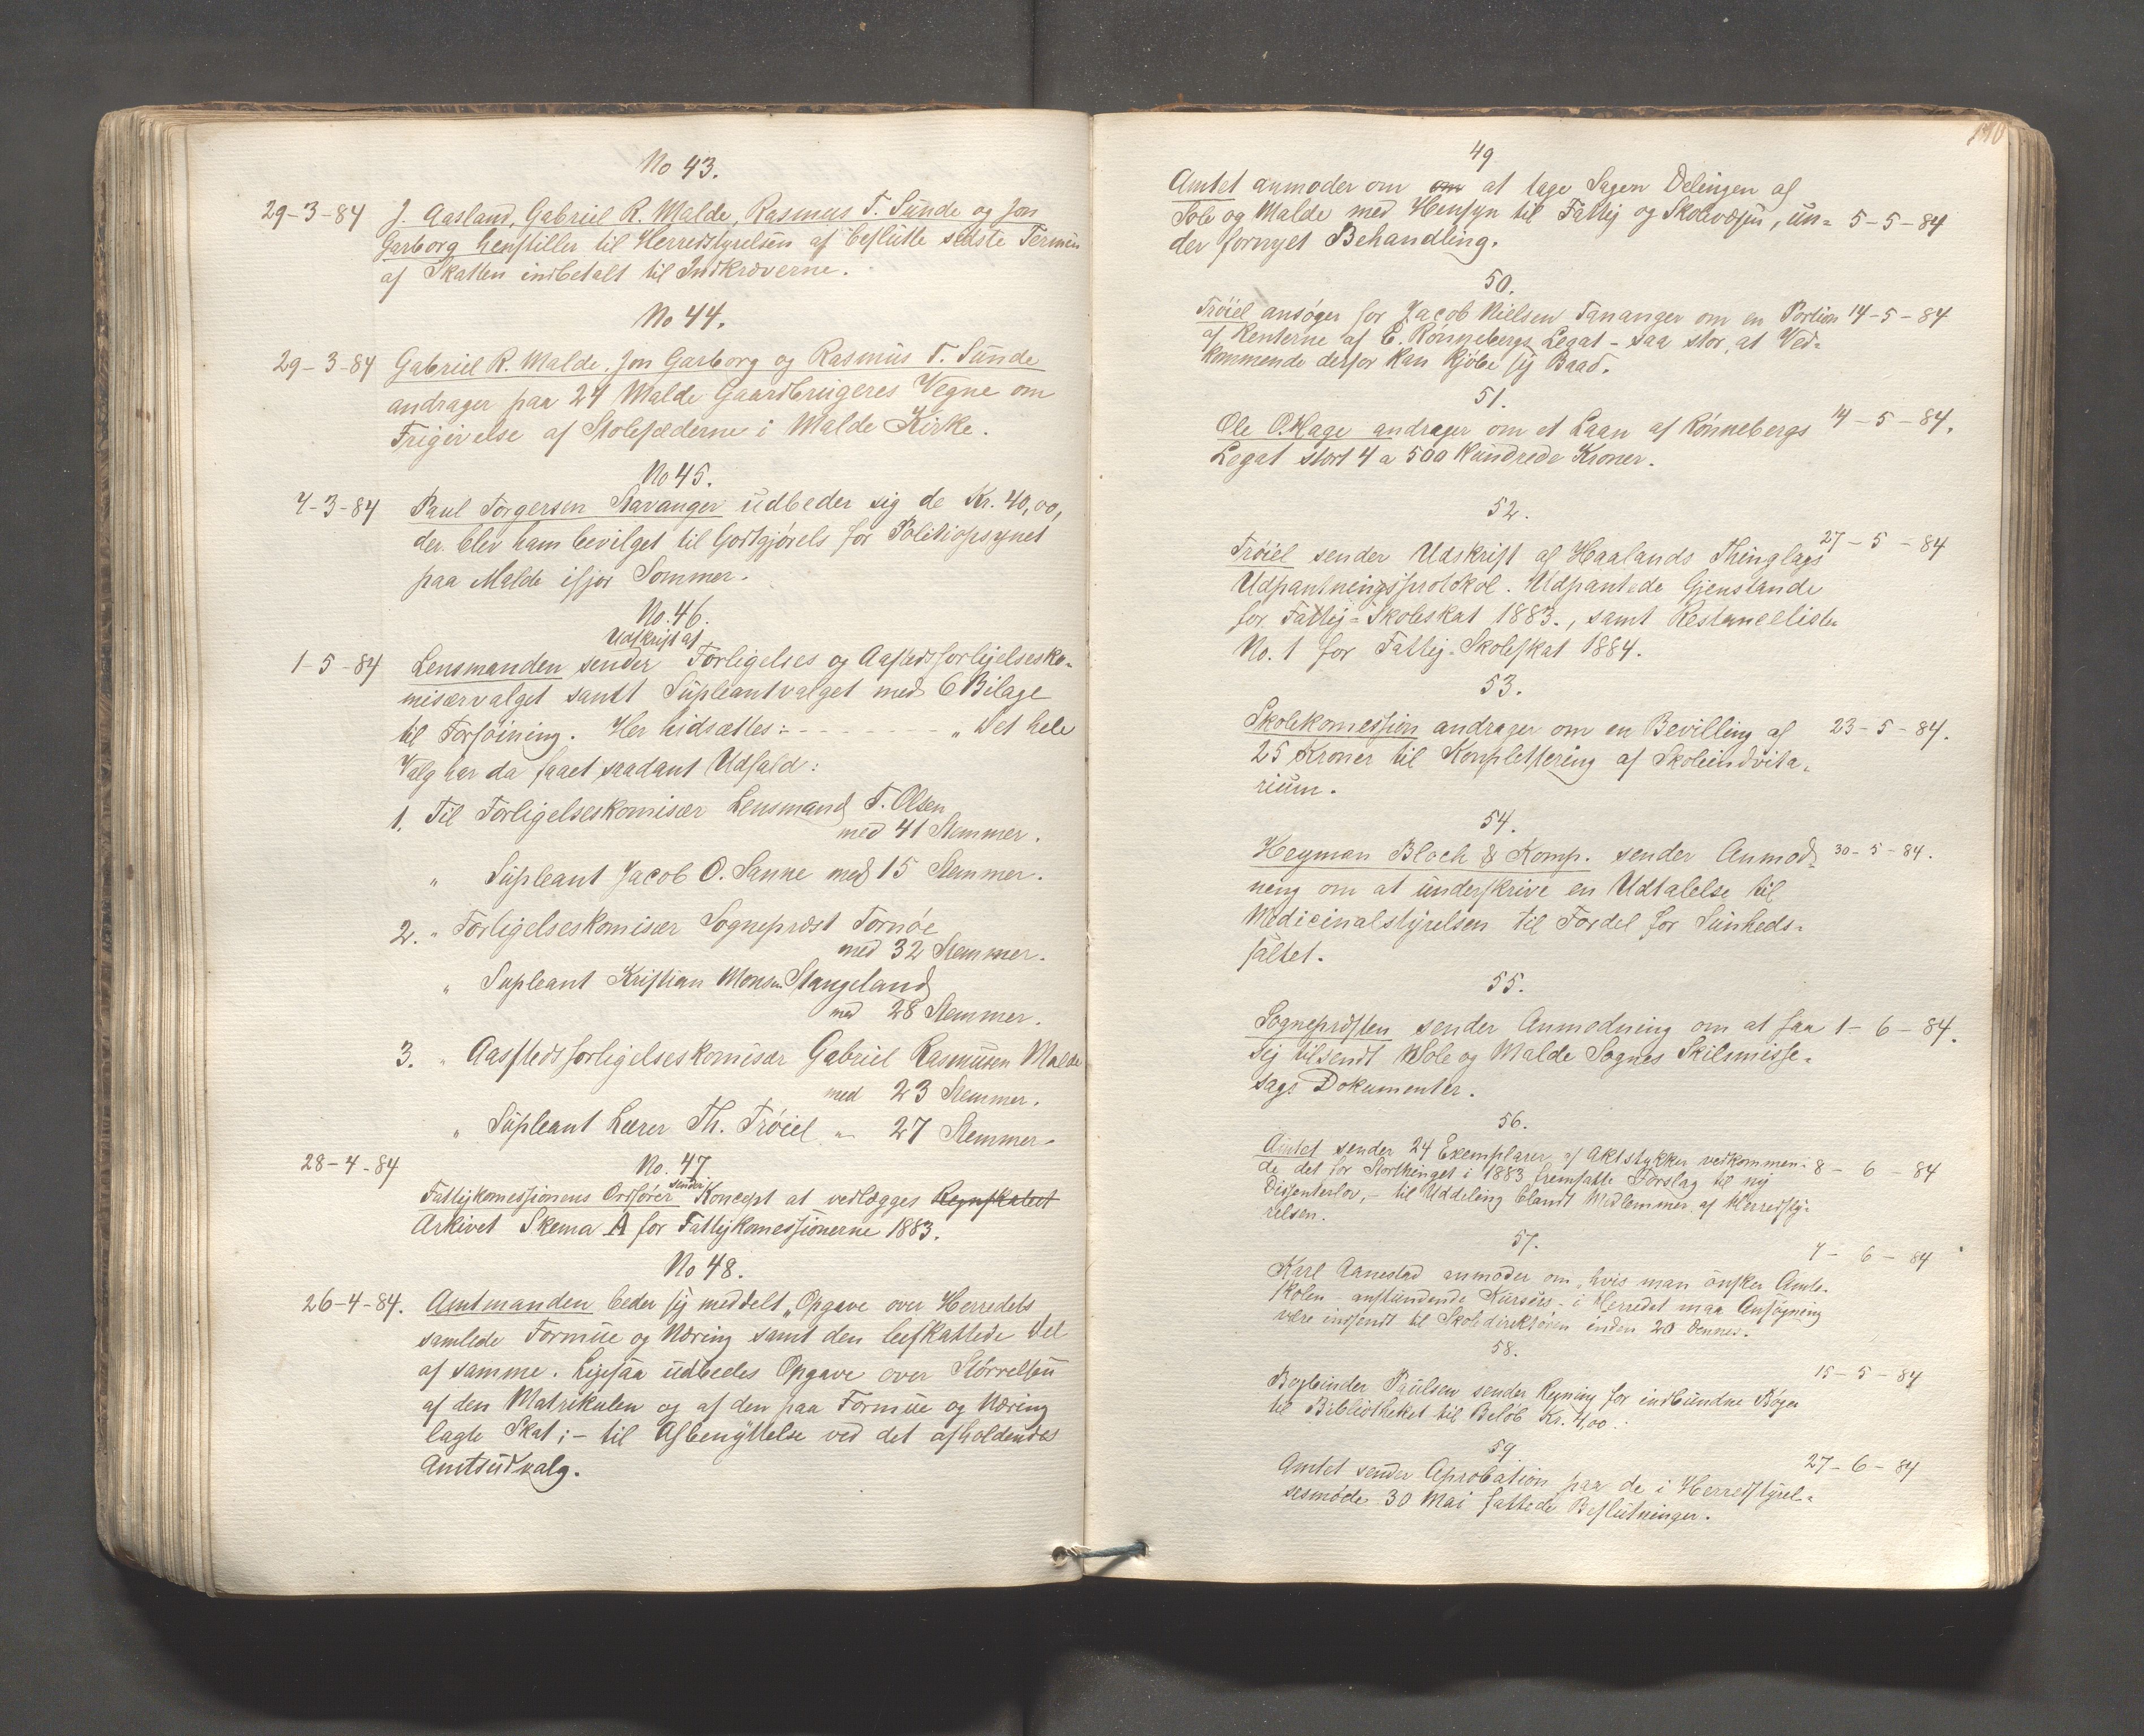 No 43.
29-3-84 J. Aasland, Gabriel R. Malde, Rasmus T. Sunde og Jon
Garborg henstiller til Herredstyrelsen af beslutte sidste Termin
af Skatten indbetalt til Indkræverne.
No 44.
29-3-84 Gabriel R. Malde, Jon Garborg og Rasmus T. Sunde
andrager paa 24 Malde Gaardbrugeres Vegne om
Frigivelse af Stolesæderne i Malde Kirke.
No 45.
4-3-84 Paul Torgersen Stavanger udbeder sig de Kr. 40,00,
der blev ham bevilget til Godtgjørels for Politiopsynet
paa Malde ifjor Sommer.
No. 46.
Udskrift af
1-5-84 Lensmanden sender Forligelses og Aastedsforligelsesko-
misærvalget samt Supleantvalget med 6 Bilage
til Forføining. Her hidsættes: - - - - - - - „ Det hele
Valg har da faaet saadant Udfald:
1. Til Forligelseskomisær Lensmand T. Olsen
med 41 Stemmer.
" Supleant Jacob O. Sanne med 15 Stemmer.
2. " Forligelseskomisær Sogneprest Tornøe
med 32 Stemmer.
" Supleant Kristian Monsen Stangeland
med 28 Stemmer.
3. " Aastedsforligelseskomisær Gabriel Rasmusen Malde
med 23 Stemmer.
" Supleant Lærer Th. Trøiel " 27 Stemmer.
28-4-84 No. 47
sender
Fattigkomessionens Ordfører Koncept at vedlægges Regnskabet
Arkivet Skema A for Fattigkomessionerne 1883.
No 48.
26-4-84. Amtmanden beder sig meddelt „Opgave over Herredets
samlede Formue og Næring samt den beskattede Del
af samme. Ligesaa udbedes Opgave over Størrelsen
af den Matrikulen og af den paa Formue og Næring
lagte Skat; - til Afbenyttelse ved det afholdendes
Amtsudvalg.
110
49
Amtet anmoder om om at tage Sagen Delingen af
Sole og Malde med Hensyn til Fattig og Skolevæsen, un= 5-5-84
der fornyet Behandling.
50.
Trøiel ansøger for Jacob Nielsen Tananger om en Portion 14-5-84
af Renterne af E. Rønnebergs Legat - saa stor, at Ved=
kommende derfor kan kjøbe sig Baad.
51.
Ole O. Hage andrager om et Laan af Rønnebergs 14-5-84.
Legat stort 4 a 500 Hundrede Kroner.
52.
27-5-84
Trøiel sender Udskrift af Haalands Thinglags
Udpantningsprotokol. Udpantede Gjenstande
for Fattig=Skoleskat 1883., samt Restancelisten
No. 1 for Fattig-Skoleskat 1884.
53.
Skolekomession andrager om en Bevilling af 23-5-84.
25 Kroner til Komplettering af Skoleindvita=
rium.
54.
Heyman Bloch & Komp. sender Anmod= 30-5-84.
ning om at underskrive en Udtalelse til
Medicinalstyrelsen til Fordel for Sunheds=
saltet.
55.
Sognepresten sender Anmodning om at faa 1-6-84.
sig tilsendt Sole og Malde Sognes Skilsmisse=
sags Dokumenter.
56.
Amtet sender 24 Exemplarer af Aktstykker vedkommen= 8-6-84
de det for Storthinget i 1883 fremsatte Forslag til ny
Dissenterlov, - til Uddeling blandt Medlemmer af Herredsty=
relsen.
57.
4-6-84
Karl Aanestad anmoder om, hvis man ønsker Amts-
skolen - anstundende Kursus - i Herredet maa Ansøgning
være indsendt til Skoledirektøren inden 20 dennes.
58.
15-5-84
Bogbinder Paulsen sender Regning for indbundne Bøger
til Bibliotheket til Beløb Kr. 4,00.
59
27-6-84
Amtet sender Aprobation paa de i Herredstyrel=
sesmøde 30 Mai fattede Beslutninger.